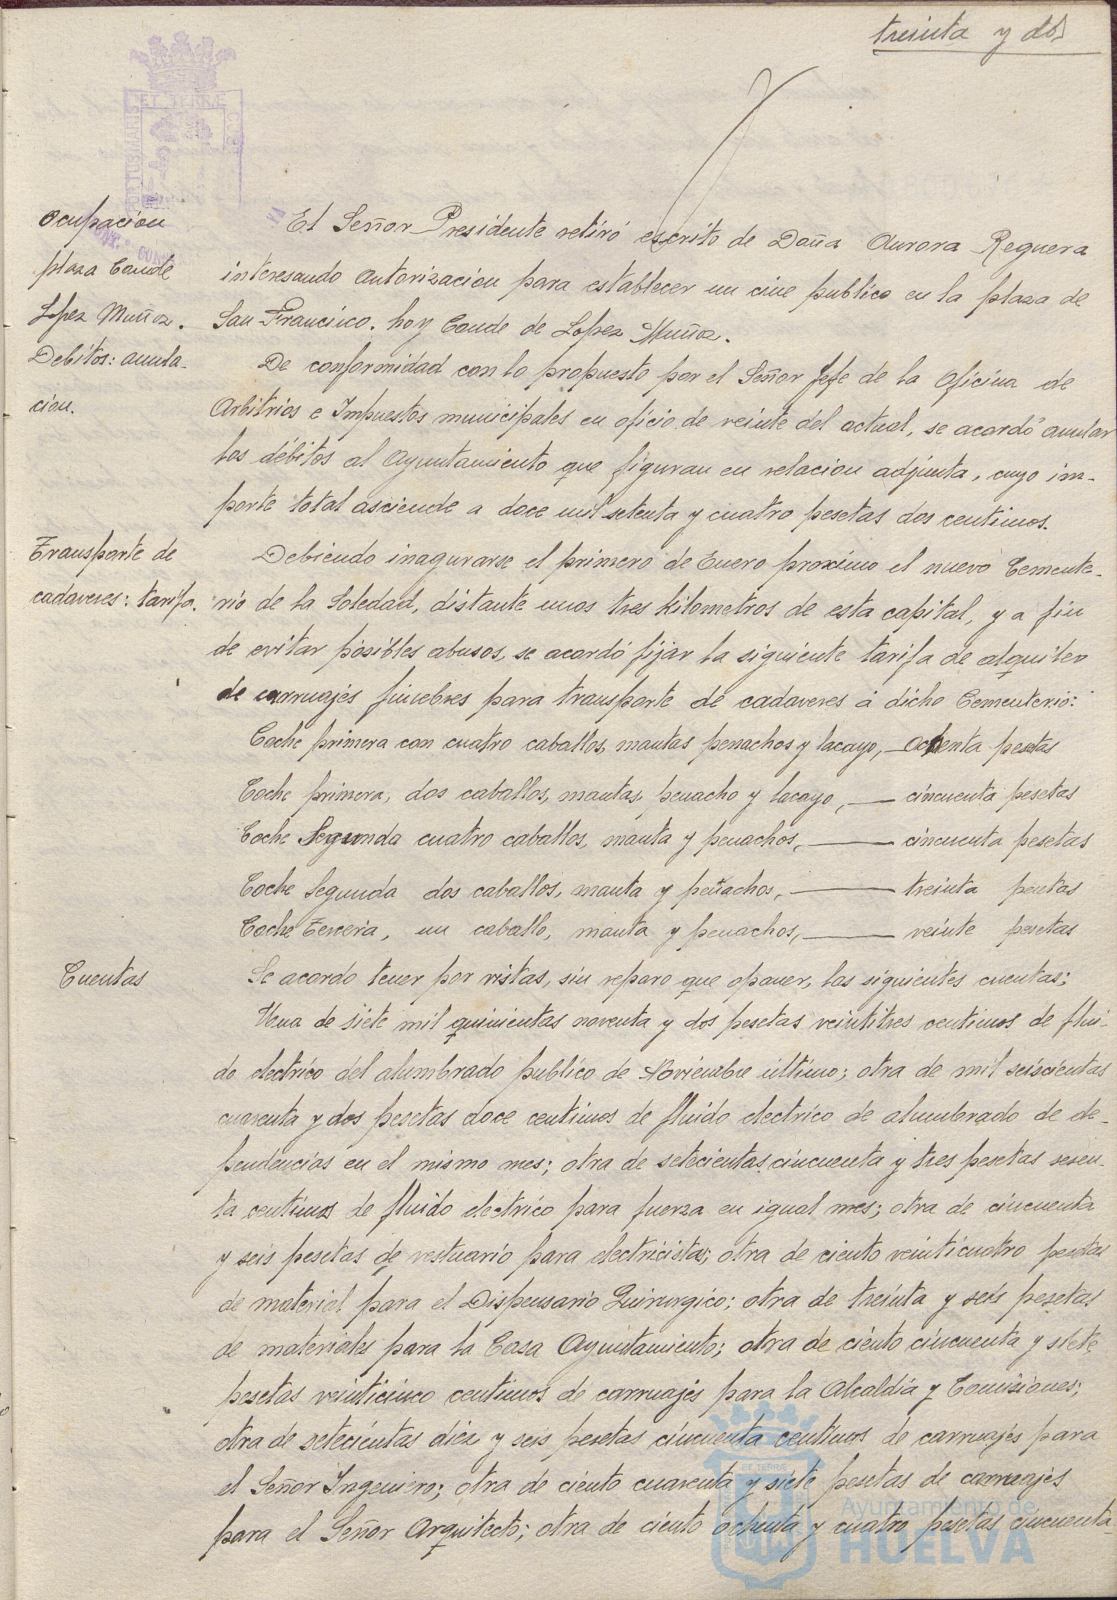 treinta y dos
ET TERRÆ
PORTUS MARIS
CUST
Ocupacion
plaza Conde
Lopez Muñoz.
El Señor Presidente retiró escrito de Doña Aurora Reguera
interesando autorizacion para establecer un cine publico en la plaza de
San Francisco. hoy Conde de Lopez Muñoz.
Debitos: anula-
cion.
De conformidad con lo propuesto por el Señor Jefe de la Oficina de
Arbitrios e Impuestos municipales en oficio de veinte del actual, se acordó anular
los débitos al Ayuntamiento que figuran en relacion adjunta, cuyo im-
porte total asciende a doce mil setenta y cuatro pesetas dos centimos.
Transporte de
cadaveres: tarifa.
Debiendo inagurarse el primero de Enero proximo el nuevo Cemente-
rio de la Soledad, distante unos tres kilometros de esta capital, y a fin
de evitar posibles abusos, se acordó fijar la siguiente tarifa de alquiler
de carruajes fúnebres para transporte de cadaveres á dicho Cementerio:
Coche primera con cuatro caballos, mantas penachos y lacayo, — ochenta pesetas
Coche primera, dos caballos, mantas, penacho y lacayo, — cincuenta pesetas
Coche Segunda cuatro caballos, manta y penachos, — cincuenta pesetas
Coche Segunda dos caballos, manta y penachos, — treinta pesetas
Coche Tercera, un caballo, manta y penachos, — veinte pesetas
Cuentas
Se acordo tener por vistas, sin reparo que oponer, las siguientes cuentas;
Una de siete mil quinientas noventa y dos pesetas veintitres centimos de flui-
do electrico del alumbrado publico de Noviembre ultimo; otra de mil seiscientas
cuarenta y dos pesetas doce centimos de fluido electrico de alumbrado de de-
pendencias en el mismo mes; otra de setecientas cincuenta y tres pesetas sesen-
ta centimos de fluido electrico para fuerza en igual mes; otra de cincuenta
y seis pesetas de vestuario para electricista; otra de ciento veinticuatro pesetas
de material para el Dispensario Quirurgico; otra de treinta y seis pesetas
de materiales para la Casa Ayuntamiento; otra de ciento cincuenta y siete
pesetas veinticinco centimos de carruajes para la Alcaldía y Comisiones;
otra de setecientas diez y seis pesetas cincuenta centimos de carruajes para
el Señor Ingeniero; otra de ciento cuarenta y siete pesetas de carruajes
para el Señor Arquitecto; otra de ciento ochenta y cuatro pesetas cincuenta
Ayuntamiento de
HUELVA